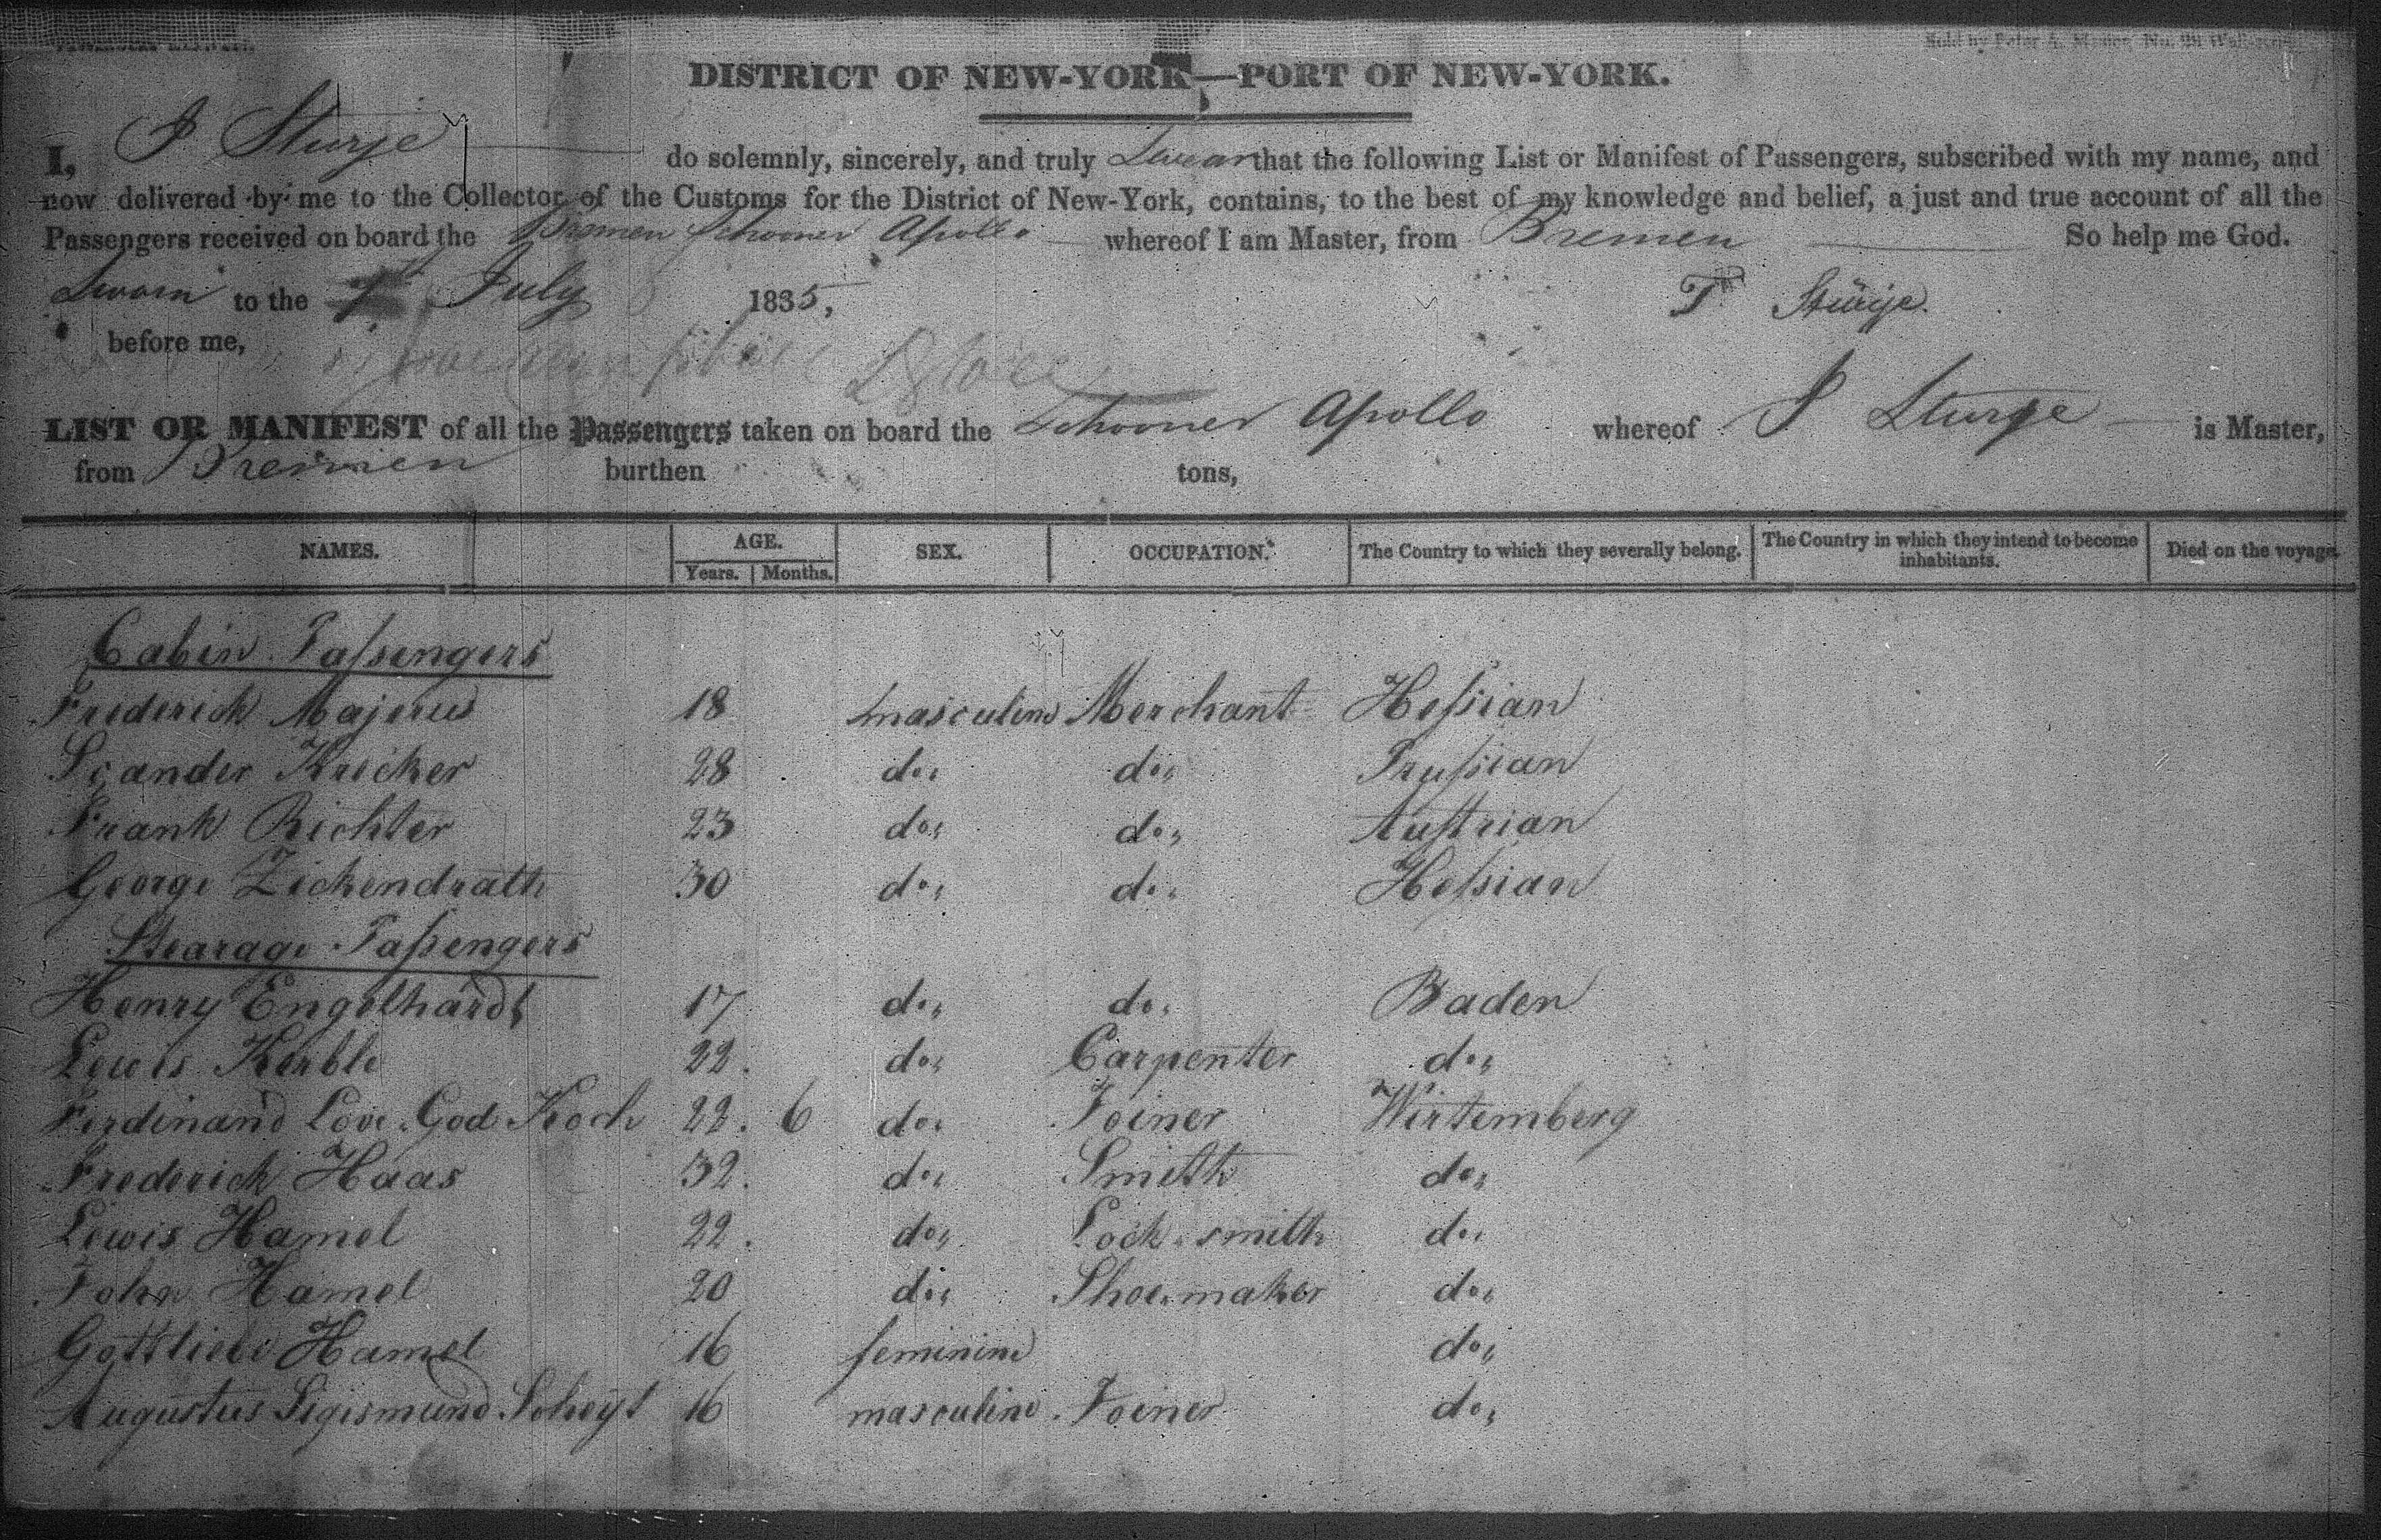 DISTRICT OF NEW-YORK—PORT OF NEW-YORK.
I, J Sturje do solemnly, sincerely, and truly Swear that the following List or Manifest of Passengers, subscribed with my name, and
now delivered by me to the Collector of the Customs for the District of New-York, contains, to the best of my knowledge and belief, a just and true account of all the
Passengers received on board the Bremen Schooner Apollo whereof I am Master, from Bremen So help me God.
Sworn to the 7th July 1835,
before me,
LIST OR MANIFEST of all the Passengers taken on board the Schooner Apollo whereof J Sturje is Master,
from Bremen burthen tons,
NAMES. AGE. SEX. OCCUPATION. The Country to which they severally belong. The Country in which they intend to become inhabitants. Died on the voyage.
Years. Months.
Cabin Passengers
Frederick Majerus 18 masculine Merchant Hessian
Scander Kricker 28 do, do, Prussian
Frank Richter 23 do, do, Austrian
George Zickendrath 30 do, do, Hessian
Stearage Passengers
Henry Engelhardt 17 do, do, Baden
Lewis Kerble 22. do, Carpenter do,
Ferdinand Love God Koch 22. 6 do, Joiner Wirtemberg
Frederick Haas 32. do, Smith do,
Lewis Hamel 22. do, Lock-smith do,
John Hamel 20 do, Shoe-maker do,
Gottlieb Hamel 16 feminine do,
Augustus Sigismund 16 masculine Joiner do,